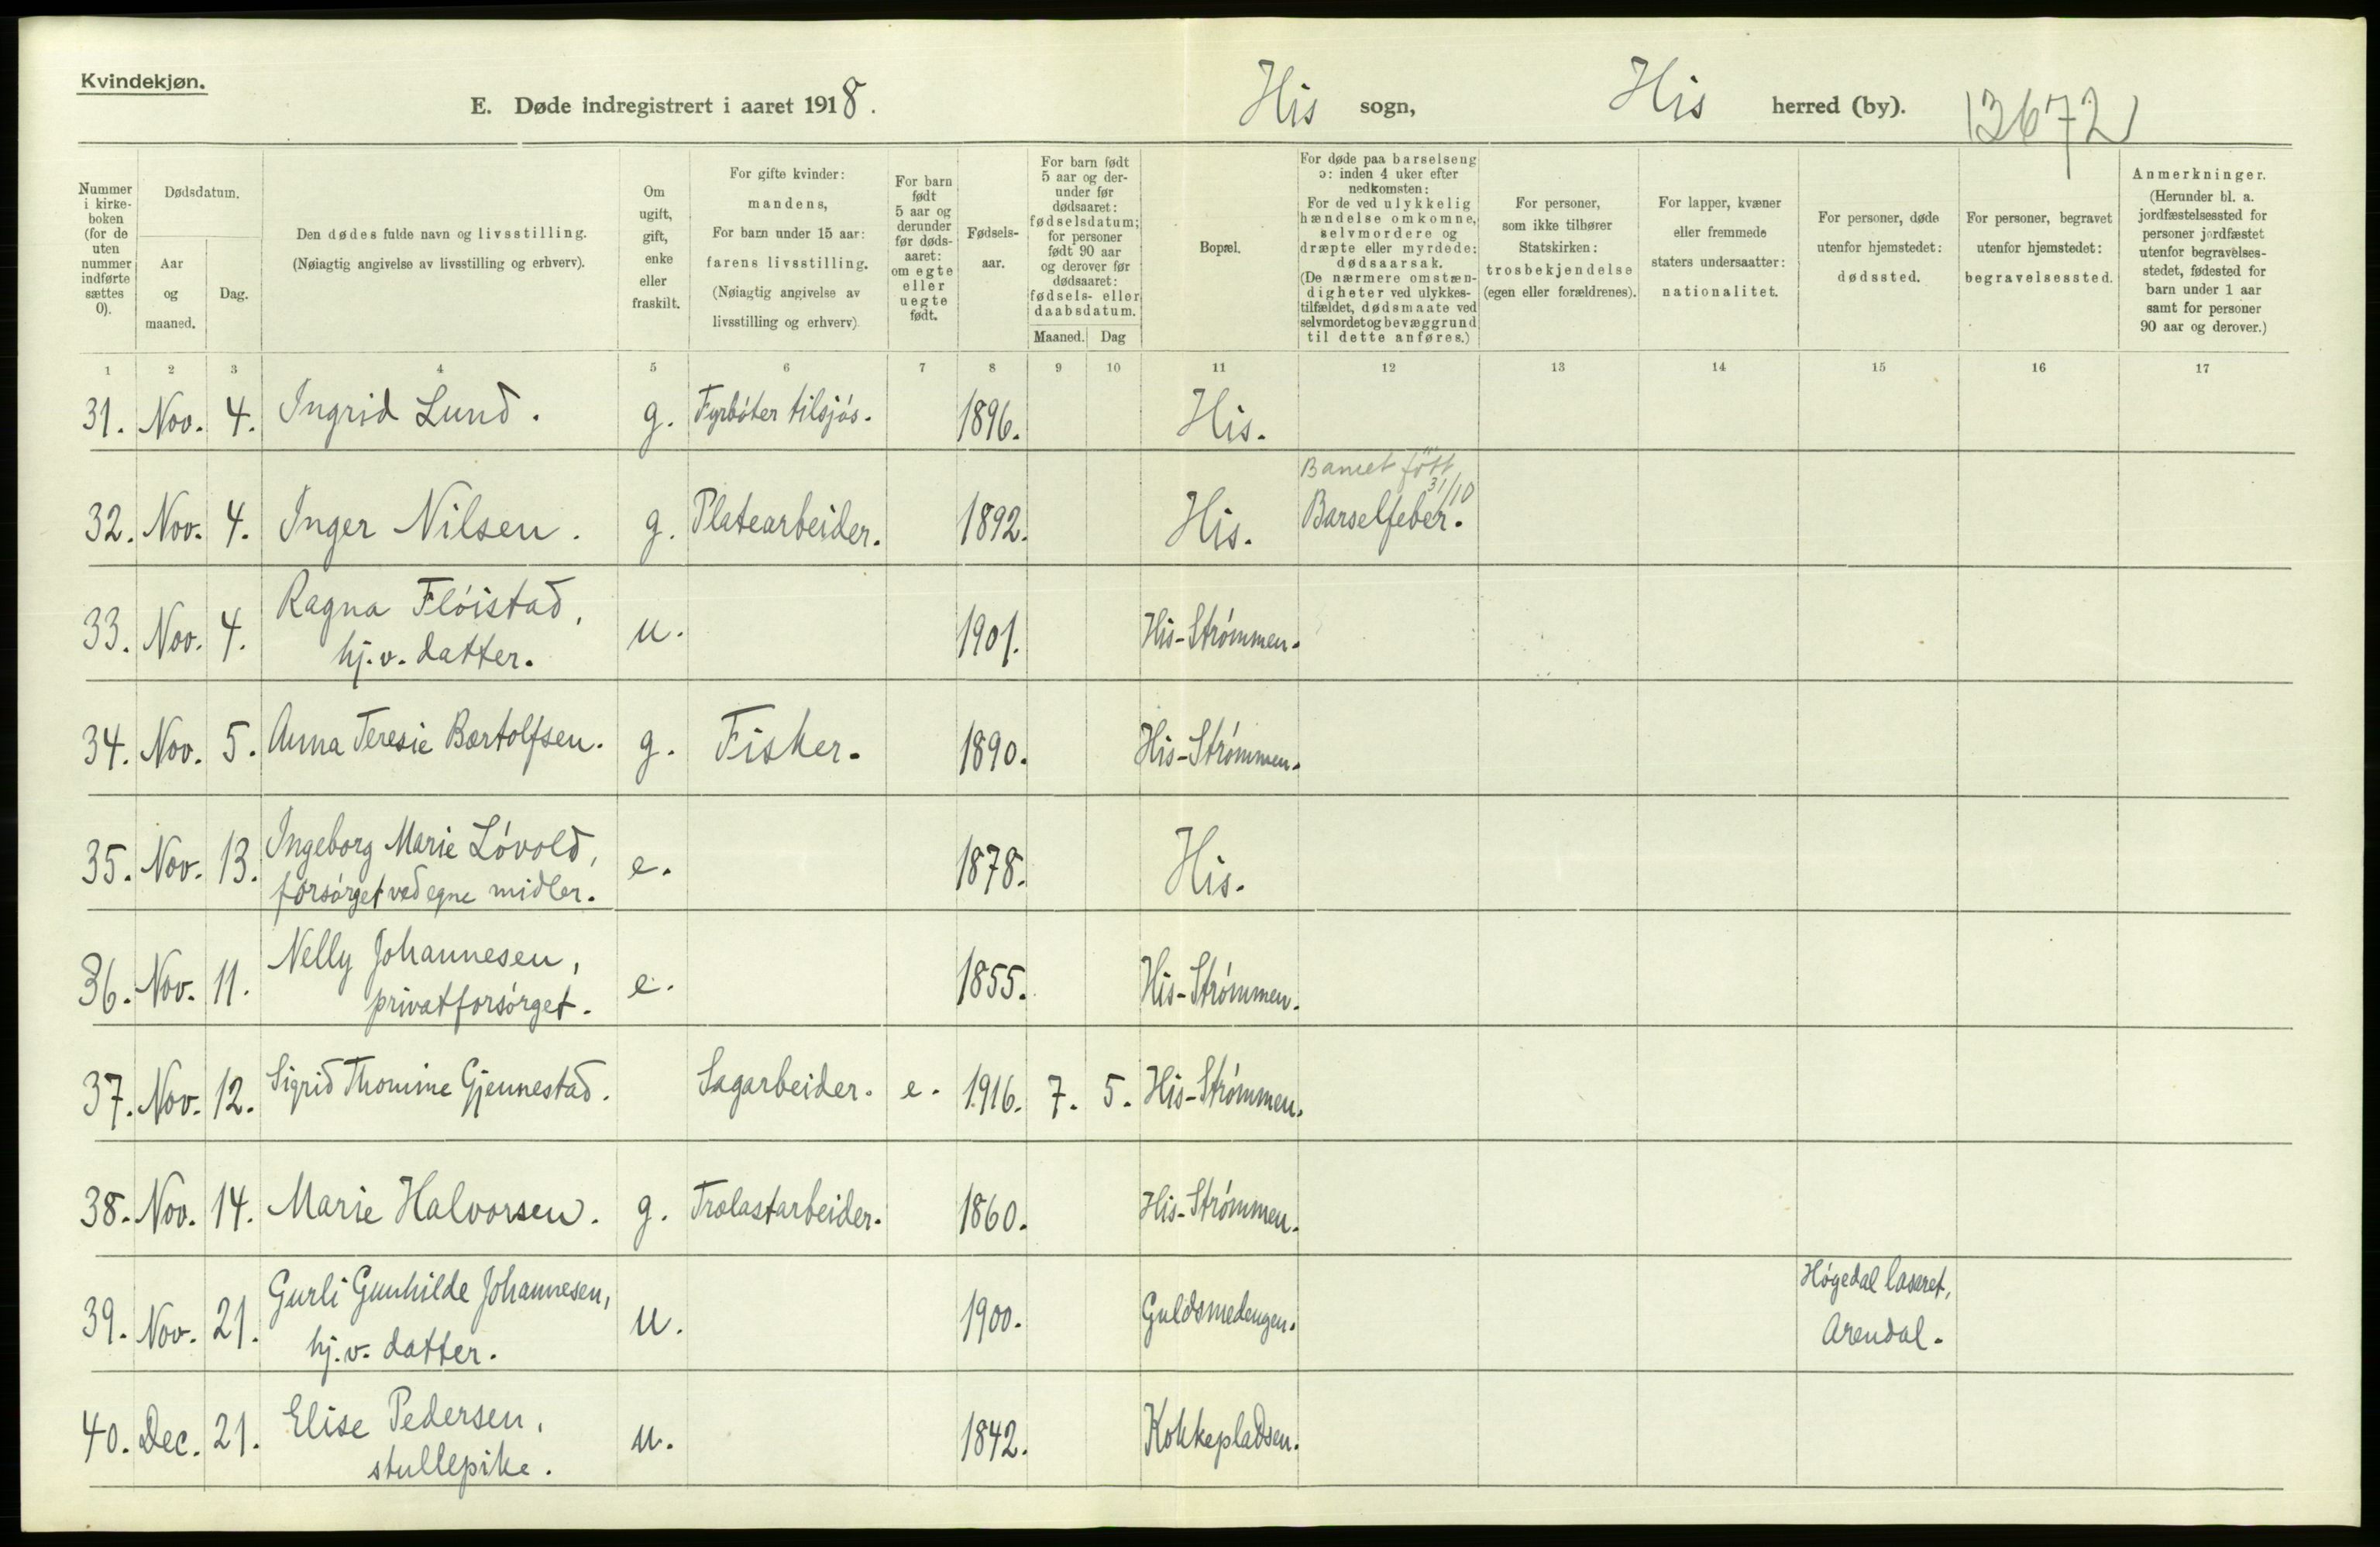 Kvindekjøn.
E. Døde indregistrert i aaret 1918.
His sogn, His herred (by). 13672
Nummer i kirkeboken (for de uten nummer indførte sættes 0).
Dødsdatum.
Aar og maaned.
Dag.
Den dødes fulde navn og livsstilling.
(Nøiagtig angivelse av livsstilling og erhverv).
Om ugift, gift, enke eller fraskilt.
For gifte kvinder: mandens,
For barn under 15 aar: farens livsstilling.
(Nøiagtig angivelse av livsstilling og erhverv)
For barn født 5 aar og derunder før dødsaaret: om egte eller uegte født.
Fødselsaar.
For barn født 5 aar og derunder før dødsaaret: fødselsdatum; for personer født 90 aar og derover før dødsaaret: fødsels- eller daabsdatum.
Maaned. Dag
Bopæl.
For døde paa barselseng ɔ: inden 4 uker efter nedkomsten:
For de ved ulykkelig hændelse omkomne, selvmordere og dræpte eller myrdede: dødsaarsak.
(De nærmere omstændigheter ved ulykkestilfældet, dødsmaate ved selvmordet og bevæggrund til dette anføres.)
For personer, som ikke tilhører Statskirken: trosbekjendelse (egen eller forældrenes).
For lapper, kvæner eller fremmede staters undersaatter: nationalitet.
For personer, døde utenfor hjemstedet: dødssted.
For personer, begravet utenfor hjemstedet: begravelsessted.
Anmerkninger.
(Herunder bl. a. jordfæstelsessted for personer jordfæstet utenfor begravelsesstedet, fødested for barn under 1 aar samt for personer 90 aar og derover.)
1 2 3 4 5 6 7 8 9 10 11 12 13 14 15 16 17
31. Nov. 4. Ingrid Lund. g. Fyrbóter tilsjós. 1896. His.
Barnet fött 31/10
32. Nov. 4. Inger Nilsen. g. Platearbeider. 1892. His. Barselfeber.
33. Nov. 4. Ragna Flóistad, u. 1901. His-Strómmen.
hj.v. datter.
34. Nov. 5. Anna Teresie Bertolfsen. g. Fisker. 1890. His-Strómmen.
35. Nov. 13. Ingeborg Marie Lóvold, e. 1878. His.
forsórget ved egne midler.
36. Nov. 11. Nelly Johannesen, e. 1855. His-Strómmen.
privatforsórget.
37. Nov. 12. Sigrid Thomine Gjennestad. Sagarbeider. e. 1916. 7. 5. His-Strómmen.
38. Nov. 14. Marie Halvorsen. g. Trælastarbeider. 1860. His-Strómmen.
39. Nov. 21. Gurli Gunhilde Johannesen, u. 1900. Guldsmedengen. Hógedal lasaret,
hj.v. datter. Arendal.
40. Dec. 21. Elise Pedersen, u. 1842. Kokkepladsen.
stullepike.